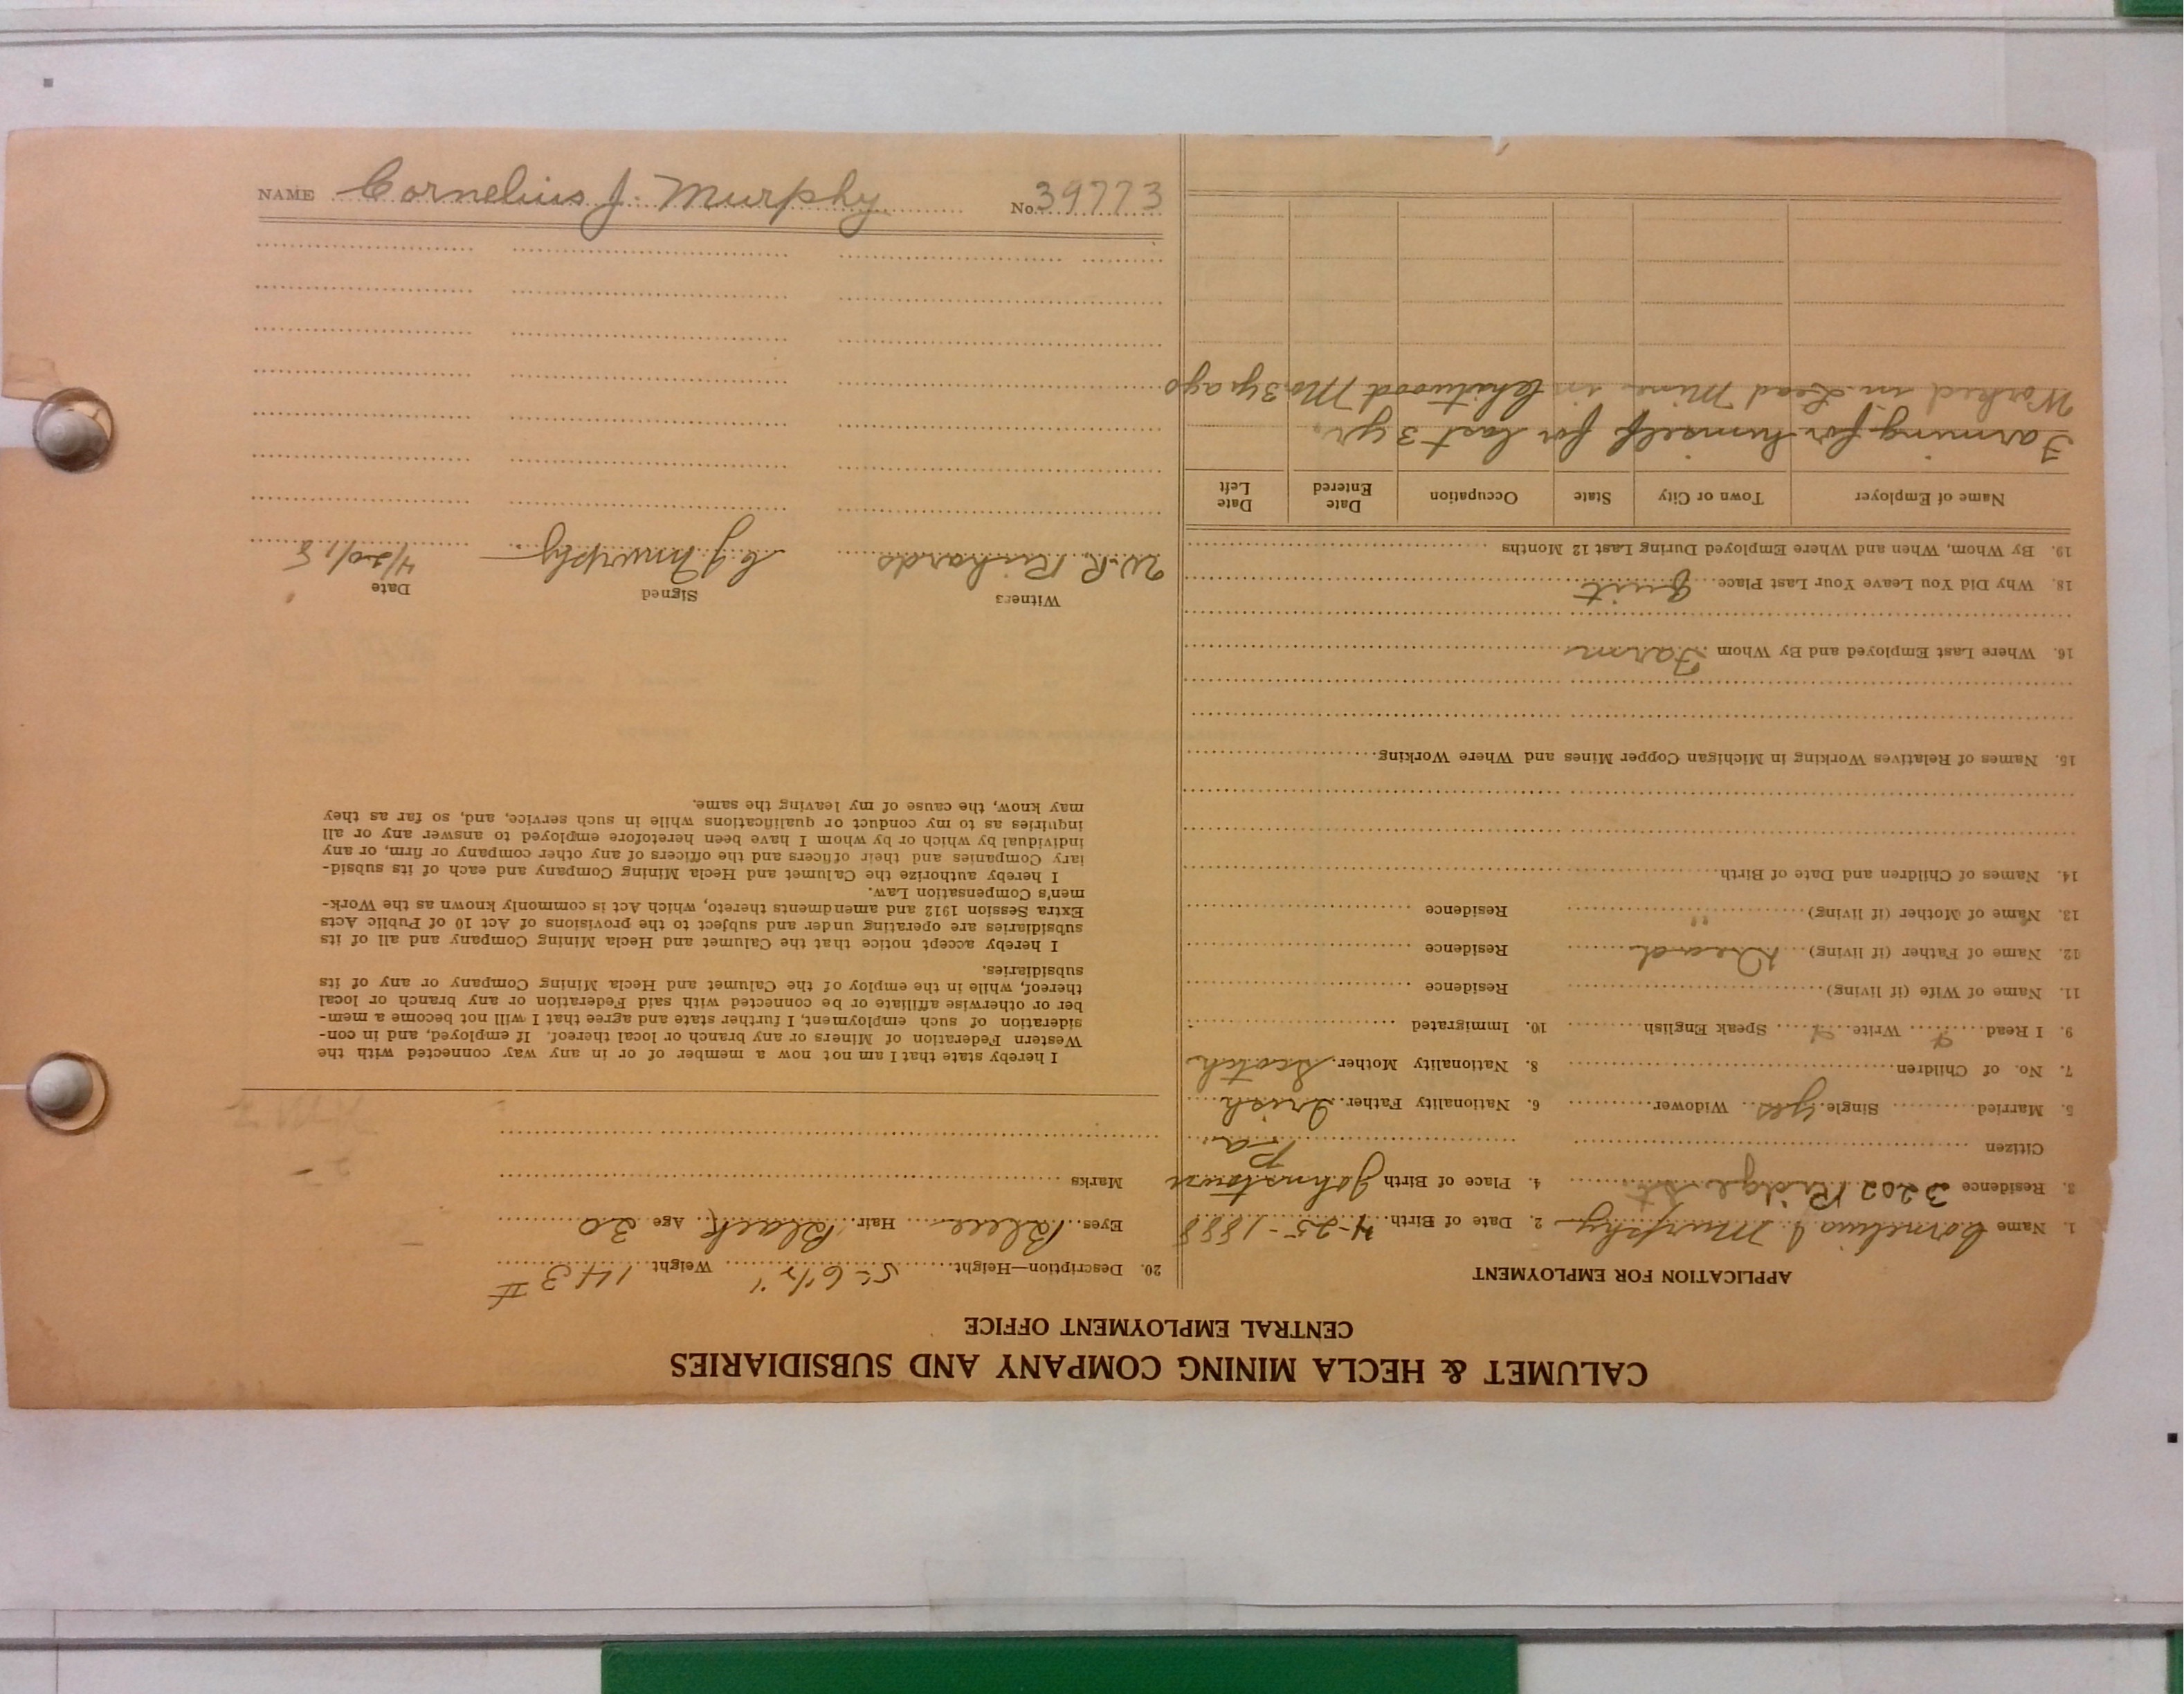 CALUMET & HECLA MINING COMPANY AND SUBSIDIARIES
CENTRAL EMPLOYMENT OFFICE
APPLICATION FOR EMPLOYMENT
1. Name Cornelius J Murphy 2. Date of Birth 4-25-1888
3. Residence 3202 Ridge St 4. Place of Birth Johnstown
Citizen Pa
5. Married Single yes Widower 6. Nationality Father Irish
7. No. of Children 8. Nationality Mother Scotch
9. I Read Write Speak English 10. Immigrated
11. Name of Wife (if living) Residence
12. Name of Father (if living) Dead Residence
13. Name of Mother (if living) " Residence
14. Names of Children and Date of Birth
15. Names of Relatives Working in Michigan Copper Mines and Where Working
16. Where Last Employed and By Whom Farm
18. Why Did You Leave Your Last Place quit
19. By Whom, When and Where Employed During Last 12 Months
Name of Employer Town or City State Occupation Date Entered Date Left
Farming for himself for last 3 yr.
Worked in Lead Mine in Chitwood Mo 3 yr ago
20. Description—Height 5-6½" Weight 143 #
Eyes Blue Hair Black Age 30
Marks
I hereby state that I am not now a member of or in any way connected with the
Western Federation of Miners or any branch or local thereof. If employed, and in con-
sideration of such employment, I further state and agree that I will not become a mem-
ber or otherwise affiliate or be connected with said Federation or any branch or local
thereof, while in the employ of the Calumet and Hecla Mining Company or any of its
subsidiaries.
I hereby accept notice that the Calumet and Hecla Mining Company and all of its
subsidiaries are operating under and subject to the provisions of Act 10 of Public Acts
Extra Session 1912 and amendments thereto, which Act is commonly known as the Work-
men's Compensation Law.
I hereby authorize the Calumet and Hecla Mining Company and each of its subsid-
iary Companies and their officers and the officers of any other company or firm, or any
individual by which or by whom I have been heretofore employed to answer any or all
inquiries as to my conduct or qualifications while in such service, and, so far as they
may know, the cause of my leaving the same.
Witness Signed Date
W.R. Richards C J Murphy 4/20/18
NAME Cornelius J. Murphy No. 39773